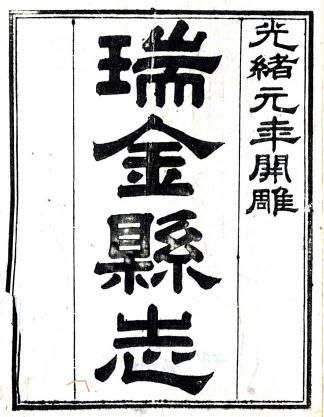 光緒元年開雕
瑞金縣志